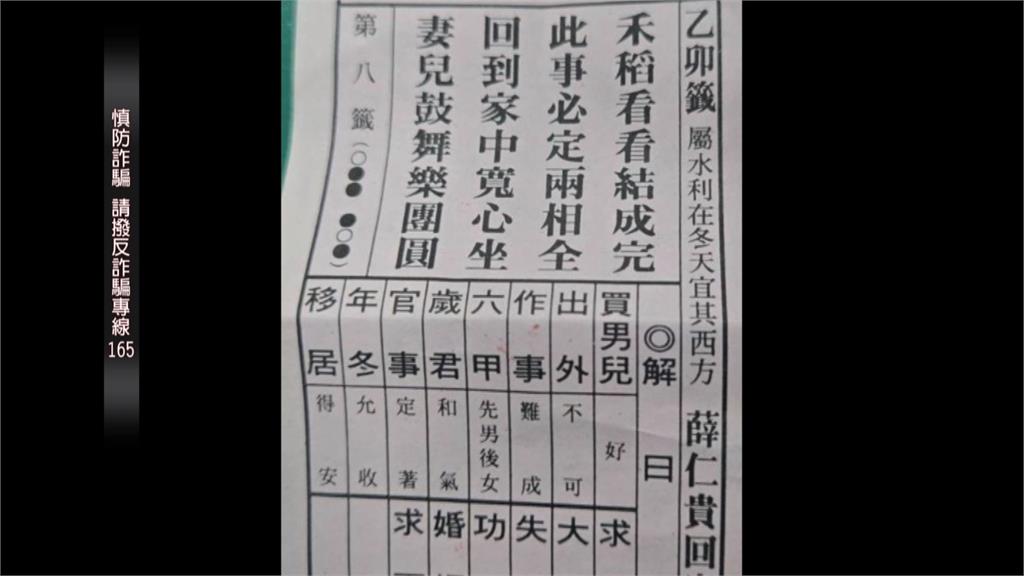 慎防詐騙 請撥反詐騙專線165
乙卯籤 屬水利在冬天宜其西方 薛仁貴回
禾稻看看結成完
此事必定兩相全
回到家中寬心坐
妻兒鼓舞樂團圓
第八籤(○●● ●○●)
◎解曰
買男兒 好 求
出外 不可 大
作事 難成 失
六甲 先男後女 功
歲君 和氣 婚
官事 定著 求
年冬 允收
移居 得安